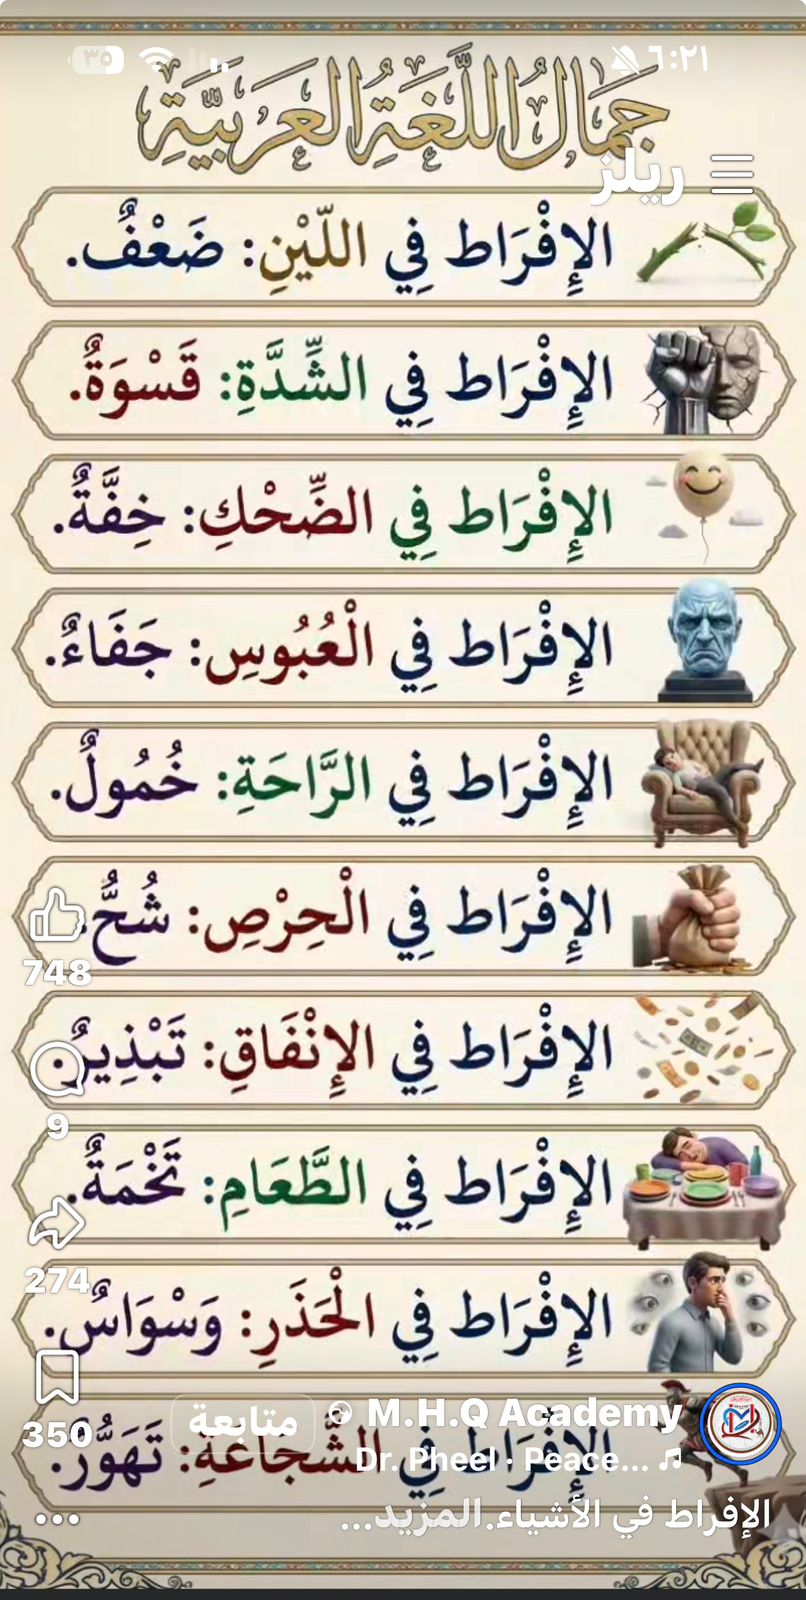 ٦:٢١
٣٥
جَمَالُ اللُّغَةِ العَرَبِيَّةِ
ريلز
الإِفْرَاط فِي اللّيْنِ: ضَعْفٌ.
الإِفْرَاط فِي الشِّدَّةِ: قَسْوَةٌ.
الإِفْرَاط فِي الضِّحْكِ: خِفَّةٌ.
الإِفْرَاط فِي الْعُبُوسِ: جَفَاءٌ.
الإِفْرَاط فِي الرَّاحَةِ: خُمُولٌ.
الإِفْرَاط فِي الْحِرْصِ: شُحٌّ.
748
الإِفْرَاط فِي الإِنْفَاقِ: تَبْذِيرٌ.
9
الإِفْرَاط فِي الطَّعَامِ: تَخْمَةٌ.
274
الإِفْرَاط فِي الْحَذَرِ: وَسْوَاسٌ.
M.H.Q Academy
متابعة
350
الإِفْرَاط فِي الشَّجَاعَةِ: تَهَوُّرٌ.
Dr. Pheel · Peace...
الإفراط في الأشياء.المزيد...